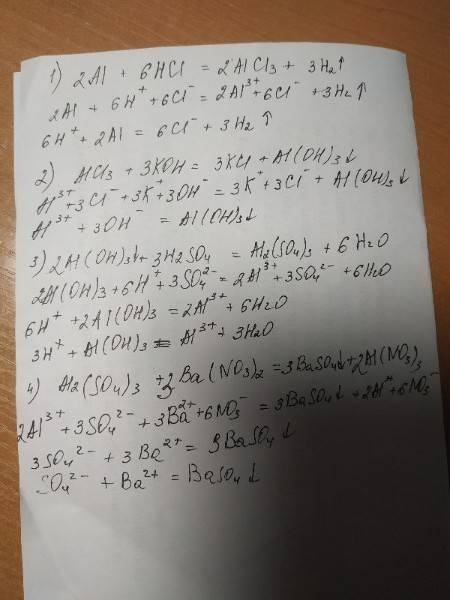 1) 2Al + 6HCl = 2AlCl₃ + 3H₂↑
2Al + 6H⁺ + 6Cl⁻ = 2Al³⁺ + 6Cl⁻ + 3H₂↑
6H⁺ + 2Al = 6Cl⁻ + 3H₂↑
2) AlCl₃ + 3KOH = 3KCl + Al(OH)₃↓
Al³⁺ + 3Cl⁻ + 3K⁺ + 3OH⁻ = 3K⁺ + 3Cl⁻ + Al(OH)₃↓
Al³⁺ + 3OH⁻ = Al(OH)₃↓
3) 2Al(OH)₃↓ + 3H₂SO₄ = Al₂(SO₄)₃ + 6H₂O
2Al(OH)₃ + 6H⁺ + 3SO₄²⁻ = 2Al³⁺ + 3SO₄²⁻ + 6H₂O
6H⁺ + 2Al(OH)₃ = 2Al³⁺ + 6H₂O
3H⁺ + Al(OH)₃ = Al³⁺ + 3H₂O
4) Al₂(SO₄)₃ + 3Ba(NO₃)₂ = 3BaSO₄↓ + 2Al(NO₃)₃
2Al³⁺ + 3SO₄²⁻ + 3Ba²⁺ + 6NO₃⁻ = 3BaSO₄↓ + 2Al³⁺ + 6NO₃⁻
3SO₄²⁻ + 3Ba²⁺ = 3BaSO₄↓
SO₄²⁻ + Ba²⁺ = BaSO₄↓